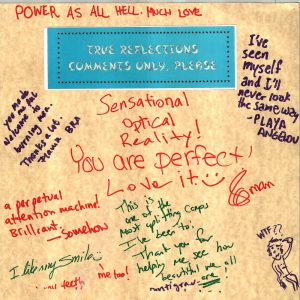 POWER AS ALL HELL. MUCH LOVE
TRUE REFLECTIONS
COMMENTS ONLY, PLEASE
I've
seen
myself
and I'll
never look
the same way
-PLAYA
ANGELOU
Sensational
Optical
Reality!
You are perfect,
Love it
you made
welcome
Thanks a lot.
a perpetual
attention machine.
Brilliant -somehow
This is
one of the
most uplifting camps
I've been to.
Thank you for
helping me see how
beautiful we all
are!
I like my smile
me too!
my teeth
WTF??